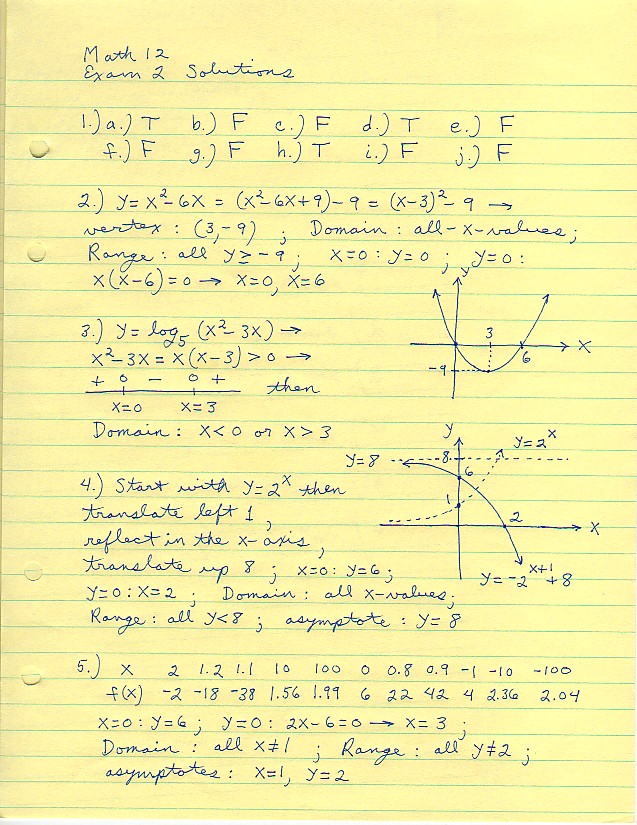 Math 12
Exam 2 Solutions
1.) a.) T b.) F c.) F d.) T e.) F
f.) F g.) F h.) T i.) F j.) F
2.) y = x² - 6x = (x² - 6x + 9) - 9 = (x-3)² - 9 →
vertex : (3, -9) ; Domain : all - x - values ;
Range : all y ≥ -9 ; x=0 : y=0 ; y=0 :
x(x-6) = 0 → x=0, x=6
y
3
x
6
-9
3.) y = log₅ (x² - 3x) →
x² - 3x = x(x-3) > 0 →
+ 0 - 0 + then
x=0 x=3
Domain : x < 0 or x > 3
y
y=2ˣ
y=8
8
6
1
2
x
y = -2ˣ⁺¹ + 8
4.) Start with y = 2ˣ then
translate left 1 ,
reflect in the x-axis ,
translate up 8 ; x=0 : y=6 ;
y=0 : x=2 ; Domain : all x-values ;
Range : all y<8 ; asymptote : y = 8
5.) x 2 1.2 1.1 10 100 0 0.8 0.9 -1 -10 -100
f(x) -2 -18 -38 1.56 1.99 6 22 42 4 2.36 2.04
x=0 : y=6 ; y=0 : 2x-6=0 → x=3 ;
Domain : all x≠1 ; Range : all y≠2 ;
asymptotes : x=1, y=2